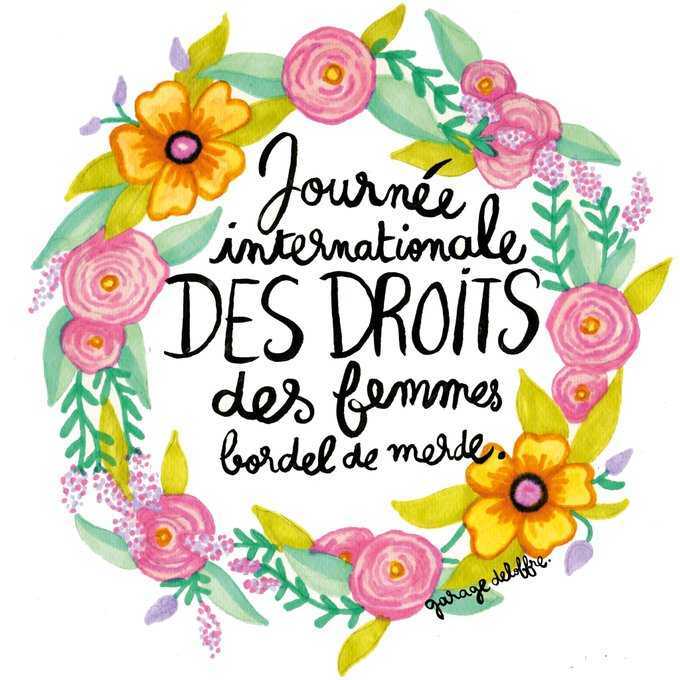 Journée
internationale
DES DROITS
des femmes
bordel de merde.
garage deloffre.